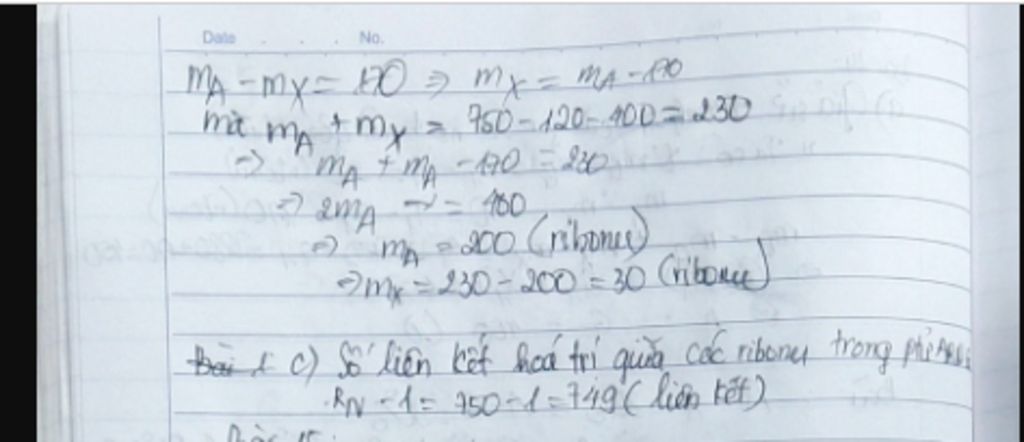 Date . . . No.
mA - mX = 170 ⇒ mX = mA - 170
mà mA + mX = 750 - 120 - 400 = 230
⇒ mA + mA - 170 = 230
⇒ 2mA = 400
⇒ mA = 200 (ribonu)
⇒ mX = 230 - 200 = 30 (ribonu)
c) Số liên kết hoá trị giữa các ribonu trong
RN - 1 = 750 - 1 = 749 (liên kết)